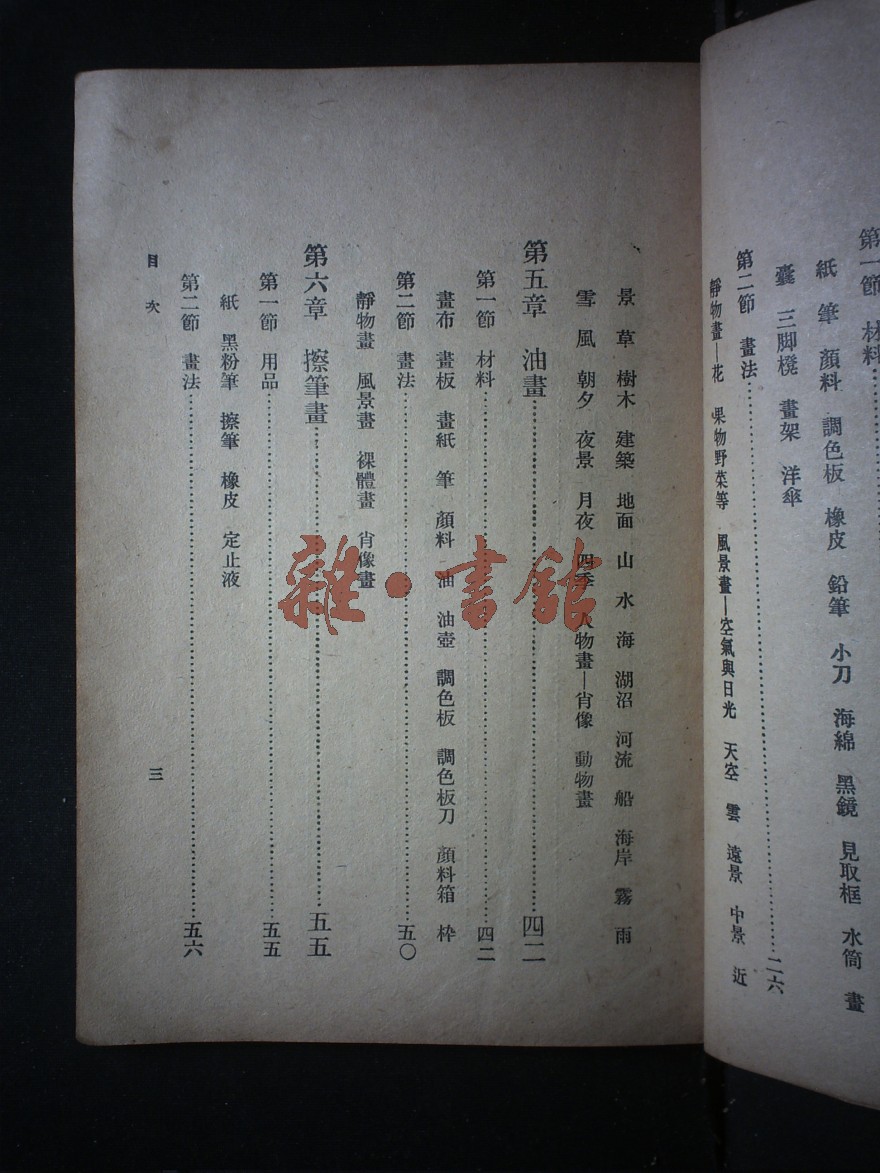 第一節 材料
紙 筆 顏料 調色板 橡皮 鉛筆 小刀 海綿 黑鏡 見取框 水筒 畫
囊 三脚櫈 畫架 洋傘
第二節 畫法……二六
靜物畫—花 果物野菜等 風景畫—空氣與日光 天空 雲 遠景 中景 近
景 草 樹木 建築 地面 山 水 海 湖沼 河流 船 海岸 霧 雨
雪 風 朝夕 夜景 月夜 四季 人物畫—肖像 動物畫
第五章 油畫……四二
第一節 材料……四二
畫布 畫板 畫紙 筆 顏料 油 油壺 調色板 調色板刀 顏料箱 枠
第二節 畫法……五〇
靜物畫 風景畫 裸體畫 肖像畫
第六章 擦筆畫……五五
第一節 用品……五五
紙 黑粉筆 擦筆 橡皮 定止液
第二節 畫法……五六
目次
三
雜·書館